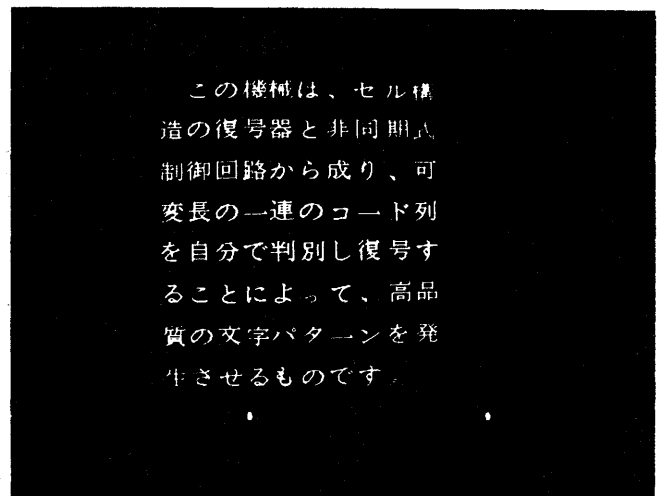 この機械は、セル構
造の復号器と非同期式
制御回路から成り、可
変長の一連のコード列
を自分で判別し復号す
ることによって、高品
質の文字パターンを発
生させるものです。